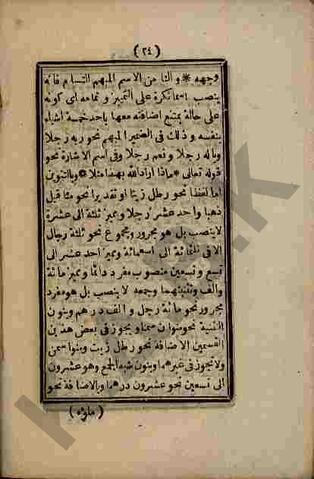 (٢٤)
وجهه * والثامن الاسم المبهم التام فانه
ينصب اسما نكرة على التمييز وتمامه اى كونه
على حالة يمتنع اضافته معها باحد خمسة اشياء
بنفسه وذلك فى الضمير المبهم نحو ربه رجلا
وياله رجلا ونعم رجلا وفى اسم الاشارة نحو
قوله تعالى * ماذا اراد الله بهذا مثلا * وبالتنوين
اما لفظا نحو رطل زيتا او تقديرا نحو مثاقيل
ذهبا واحد عشر رجلا ومميز ثلثة الى عشرة
لا ينصب بل هو مجرور ومجموع نحو ثلثة رجال
الا فى ثلثمائة الى تسعمائة ومميز احد عشر الى
تسع وتسعين منصوب مفرد دائما ومميز مائة
والف وتثنيتهما وجمعه لا ينصب بل هو مفرد
مجرور نحو مائة رجل والف درهم وبنون
التثنية نحو منوان سمنا ويجوز فى بعض هذين
القسمين الاضافة نحو رطل زيت ومنوا سمن
ولا يجوز فى غيرهما وبنون شبه الجمع وهو عشرون
الى تسعين نحو عشرون درهما وبالاضافة نحو
(ملؤه)